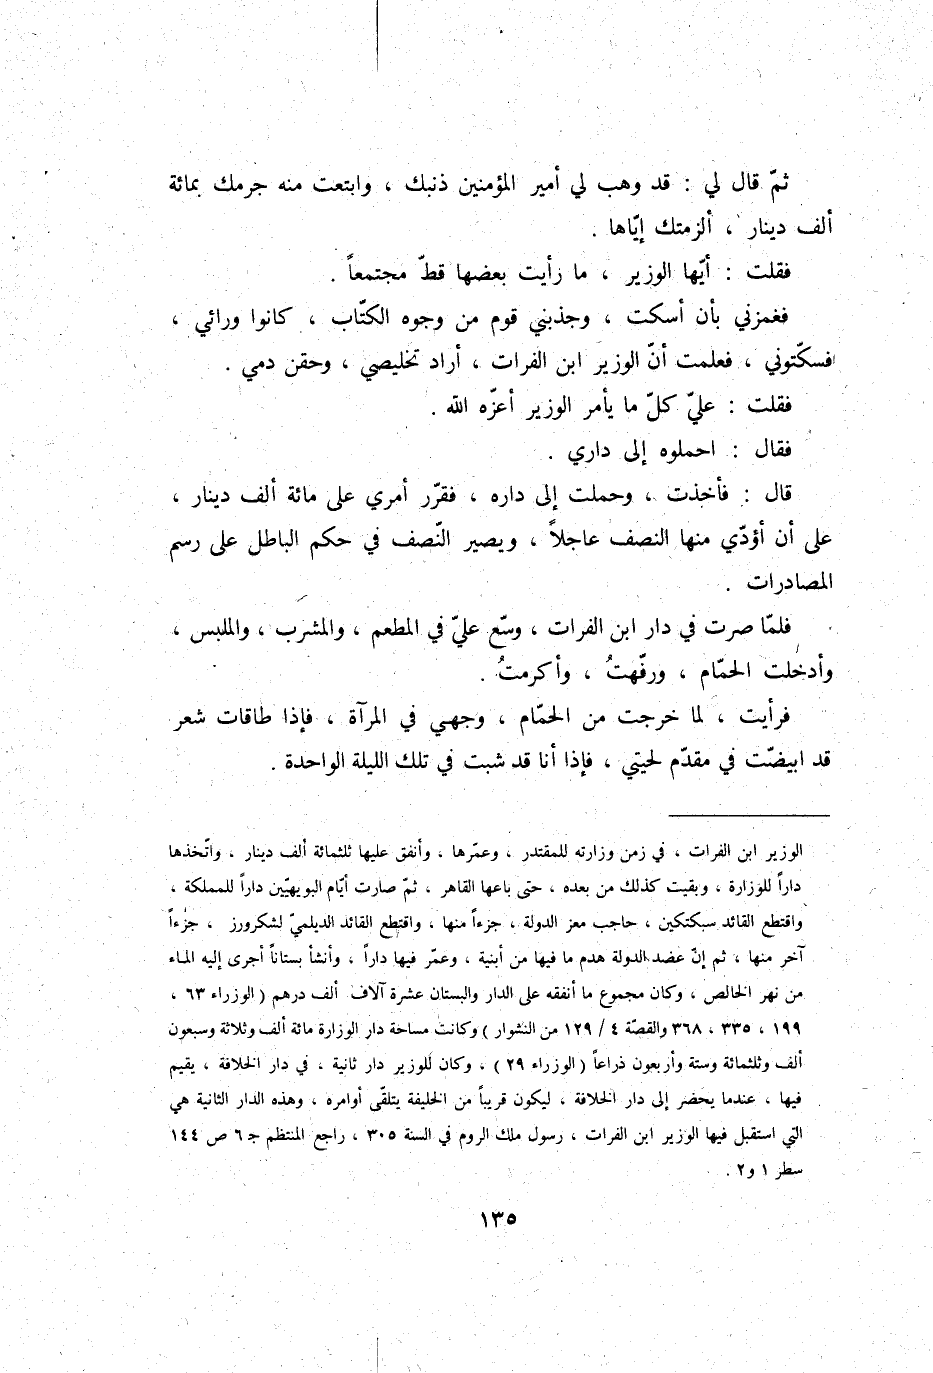 ثمّ قال لي : قد وهب لي أمير المؤمنين ذنبك ، وابتعت منه جرمك بمائة
ألف دينار ، ألزمتك إيّاها .
فقلت : أيّها الوزير ، ما رأيت بعضها قطّ مجتمعاً .
فغمزني بأن أسكت ، وجذبني قوم من وجوه الكتّاب ، كانوا ورائي ،
فسكّتوني ، فعلمت أنّ الوزير ابن الفرات ، أراد تخليصي ، وحقن دمي .
فقلت : عليّ كلّ ما يأمر الوزير أعزّه الله .
فقال : احملوه إلى داري .
قال : فأخذت ، وحملت إلى داره ، فقرّر أمري على مائة ألف دينار ،
على أن أؤدّي منها النصف عاجلاً ، ويصير النّصف في حكم الباطل على رسم
المصادرات .
فلمّا صرت في دار ابن الفرات ، وسّع عليّ في المطعم ، والمشرب ، والملبس ،
وأدخلت الحمّام ، ورفّهتُ ، وأكرمتُ .
فرأيت ، لما خرجت من الحمّام ، وجهي في المرآة ، فإذا طاقات شعر
قد ابيضّت في مقدّم لحيتي ، فإذا أنا قد شبت في تلك الليلة الواحدة .
الوزير ابن الفرات ، في زمن وزارته للمقتدر ، وعمّرها ، وأنفق عليها ثلثمائة ألف دينار ، واتّخذها
داراً للوزارة ، وبقيت كذلك من بعده ، حتى باعها القاهر ، ثمّ صارت أيّام البويهيّين داراً للمملكة ،
واقتطع القائد سبكتكين ، حاجب معز الدولة ، جزءاً منها ، واقتطع القائد الديلميّ لشكرورز ، جزءاً
آخر منها ، ثم إنّ عضد الدولة هدم ما فيها من أبنية ، وعمّر فيها داراً ، وأنشأ بستاناً أجرى إليه الماء
من نهر الخالص ، وكان مجموع ما أنفقه على الدار والبستان عشرة آلاف ألف درهم ( الوزراء ٦٣ ،
١٩٩ ، ٣٣٥ ، ٣٦٨ والقصّة ٤ / ١٢٩ من النشوار ) وكانت مساحة دار الوزارة مائة ألف وثلاثة وسبعون
ألف وثلثمائة وستة وأربعون ذراعاً ( الوزراء ٢٩ ) ، وكان للوزير دار ثانية ، في دار الخلافة ، يقيم
فيها ، عندما يحضر إلى دار الخلافة ، ليكون قريباً من الخليفة يتلقّى أوامره ، وهذه الدار الثانية هي
التي استقبل فيها الوزير ابن الفرات ، رسول ملك الروم في السنة ٣٠٥ ، راجع المنتظم ج ٦ ص ١٤٤
سطر ١ و ٢ .
١٣٥